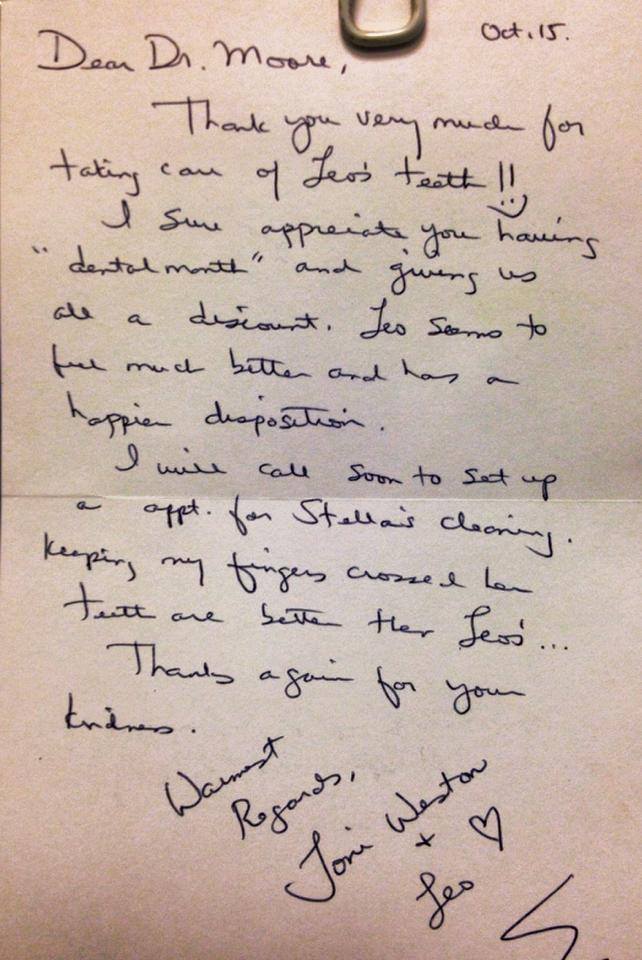 Oct. 15.
Dear Dr. Moore,
Thank you very much for
taking care of Leo's teeth!!
I sure appreciate you having
"dental month" and giving us
all a discount. Leo seems to
feel much better and has a
happier disposition.
I will call soon to set up
a appt. for Stella's cleaning.
Keeping my fingers crossed her
teeth are better than Leo's...
Thanks again for your
kindness.
Warmest
Regards,
Toni Weston
+ ♡
Leo